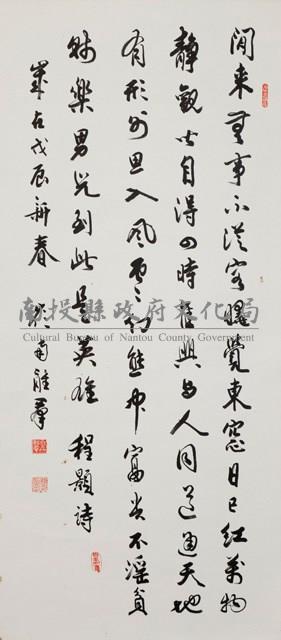 閒來無事不從容睡覺東窗日已紅萬物
靜觀皆自得四時佳興與人同道通天地
有形外思入風雲幻態中富貴不淫貧
賤樂男兒到此是英雄 程顥詩
歲在戊辰新春
南投縣政府文化局
Cultural Bureau of Nantou County Government